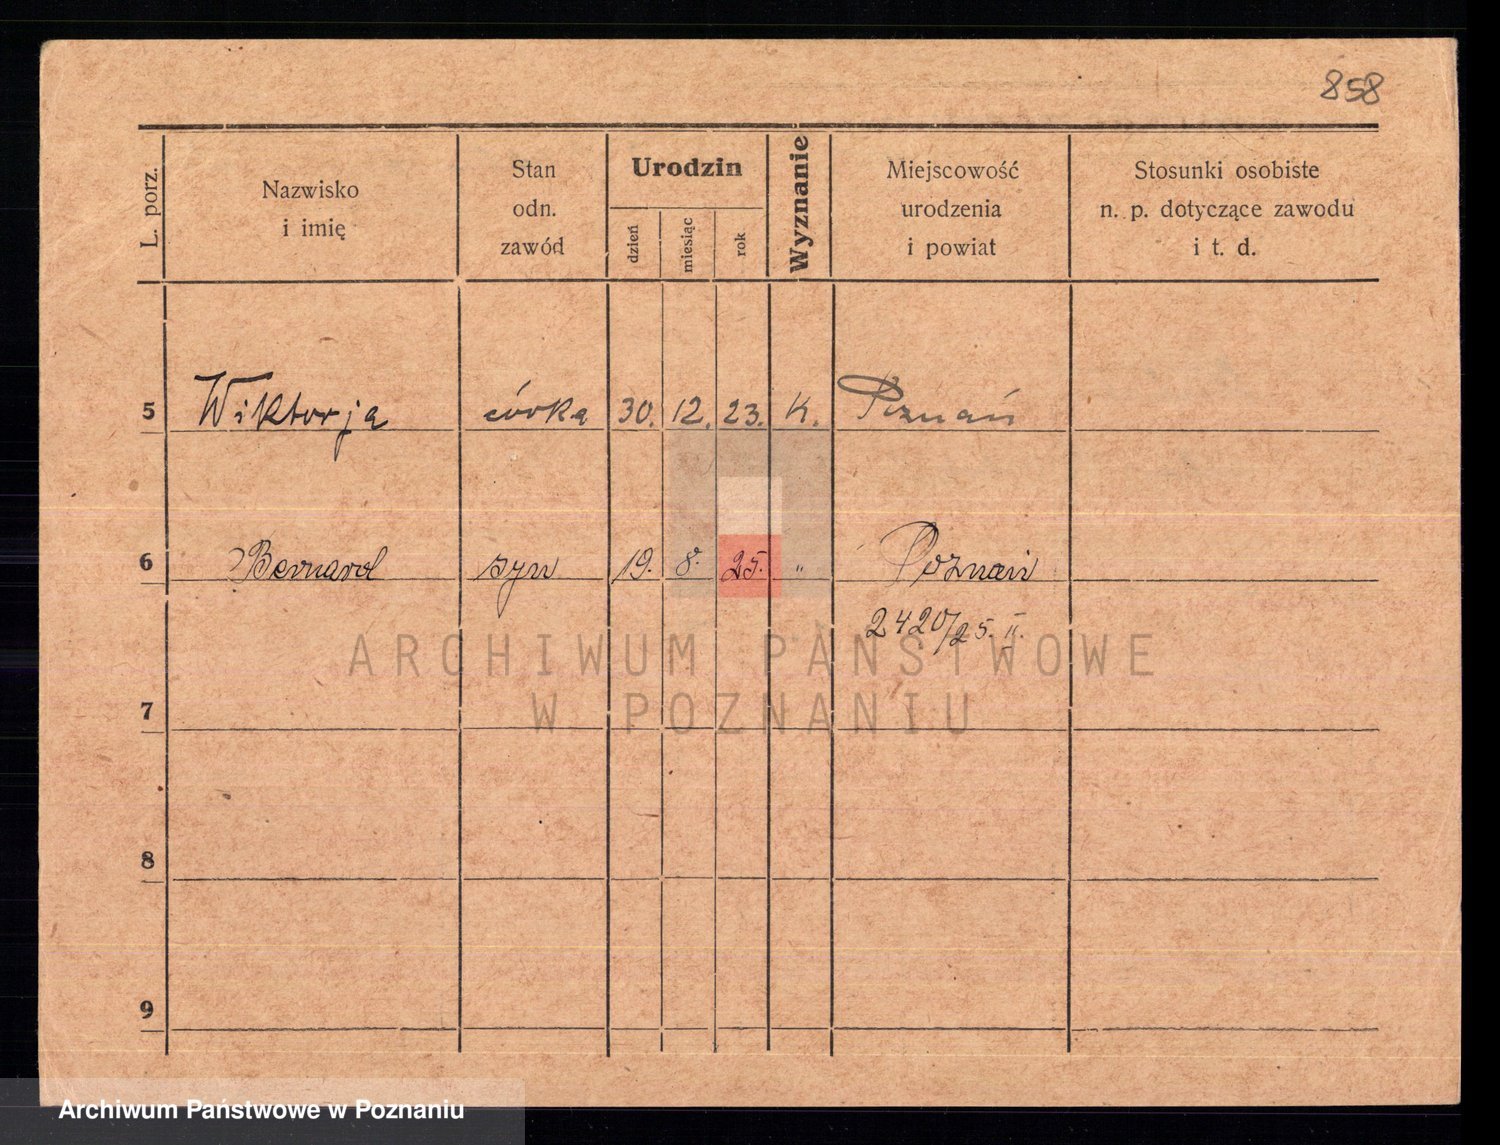 858
L. porz.
Nazwisko
i imię
Stan
odn.
zawód
Urodzin
dzień
miesiąc
rok
Wyznanie
Miejscowość
urodzenia
i powiat
Stosunki osobiste
n. p. dotyczące zawodu
i t. d.
5 Wiktorja córka 30. 12. 23. K. Poznań
6 Bernard syn 19. 8. 25. " Poznań
2420/25. II.
7
8
9
ARCHIWUM PAŃSTWOWE
W POZNANIU
Archiwum Państwowe w Poznaniu